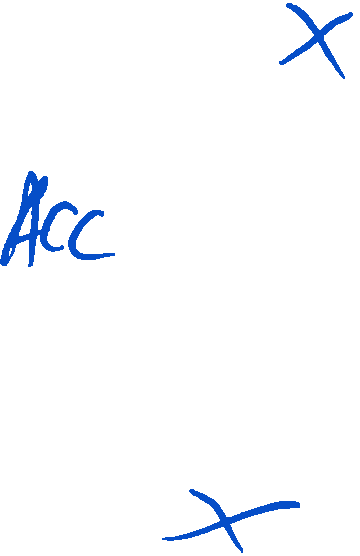 X
Acc
X